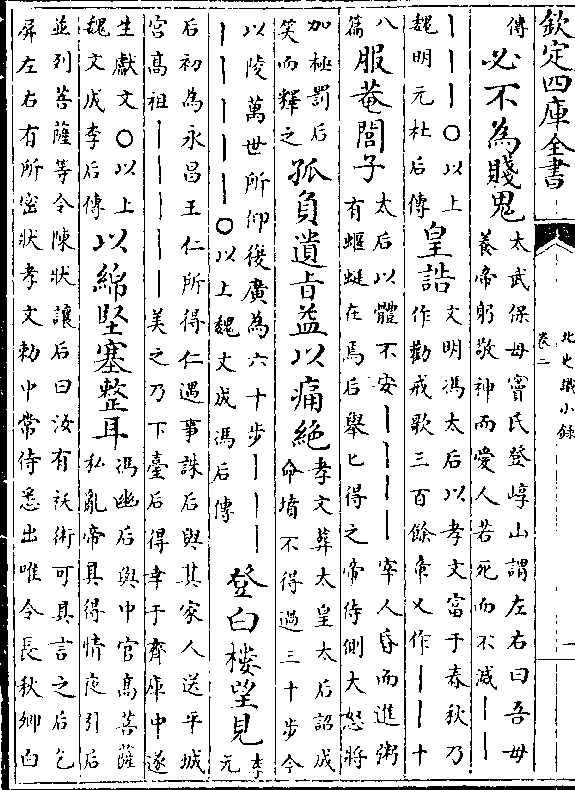 欽定四庫全書
北史識小錄
卷二
一
傳必不為賤鬼太武保母竇氏登崞山謂左右曰吾母養帝躬敬神而愛人若死而不滅｜｜
｜｜｜○以上魏明元杜后傳皇誥文明馮太后以孝文富于春秋乃作勸戒歌三百餘章又作｜｜十
八篇服菴閭子太后以體不安｜｜｜｜宰人昏而進粥有蝘蜓在焉后舉匕得之帝侍側大怒將
加極罰后笑而釋之孤負遺旨益以痛絶孝文葬太皇太后詔成命墳不得過三十步今
以陵萬世所仰復廣為六十步｜｜｜｜｜｜｜｜○以上魏文成馮后傳登白樓望見李元
后初為永昌王仁所得仁遇事誅后與其家人送平城宮高祖｜｜｜｜｜美之乃下臺后得幸于齊庫中遂
生獻文○以上魏文成李后傳以綿堅塞整耳馮幽后與中官高菩薩私亂帝具得情夜引后
並列菩薩等令陳狀讓后曰汝有祅術可具言之后乞屏左右有所密狀孝文勅中常侍悉出唯令長秋卿白